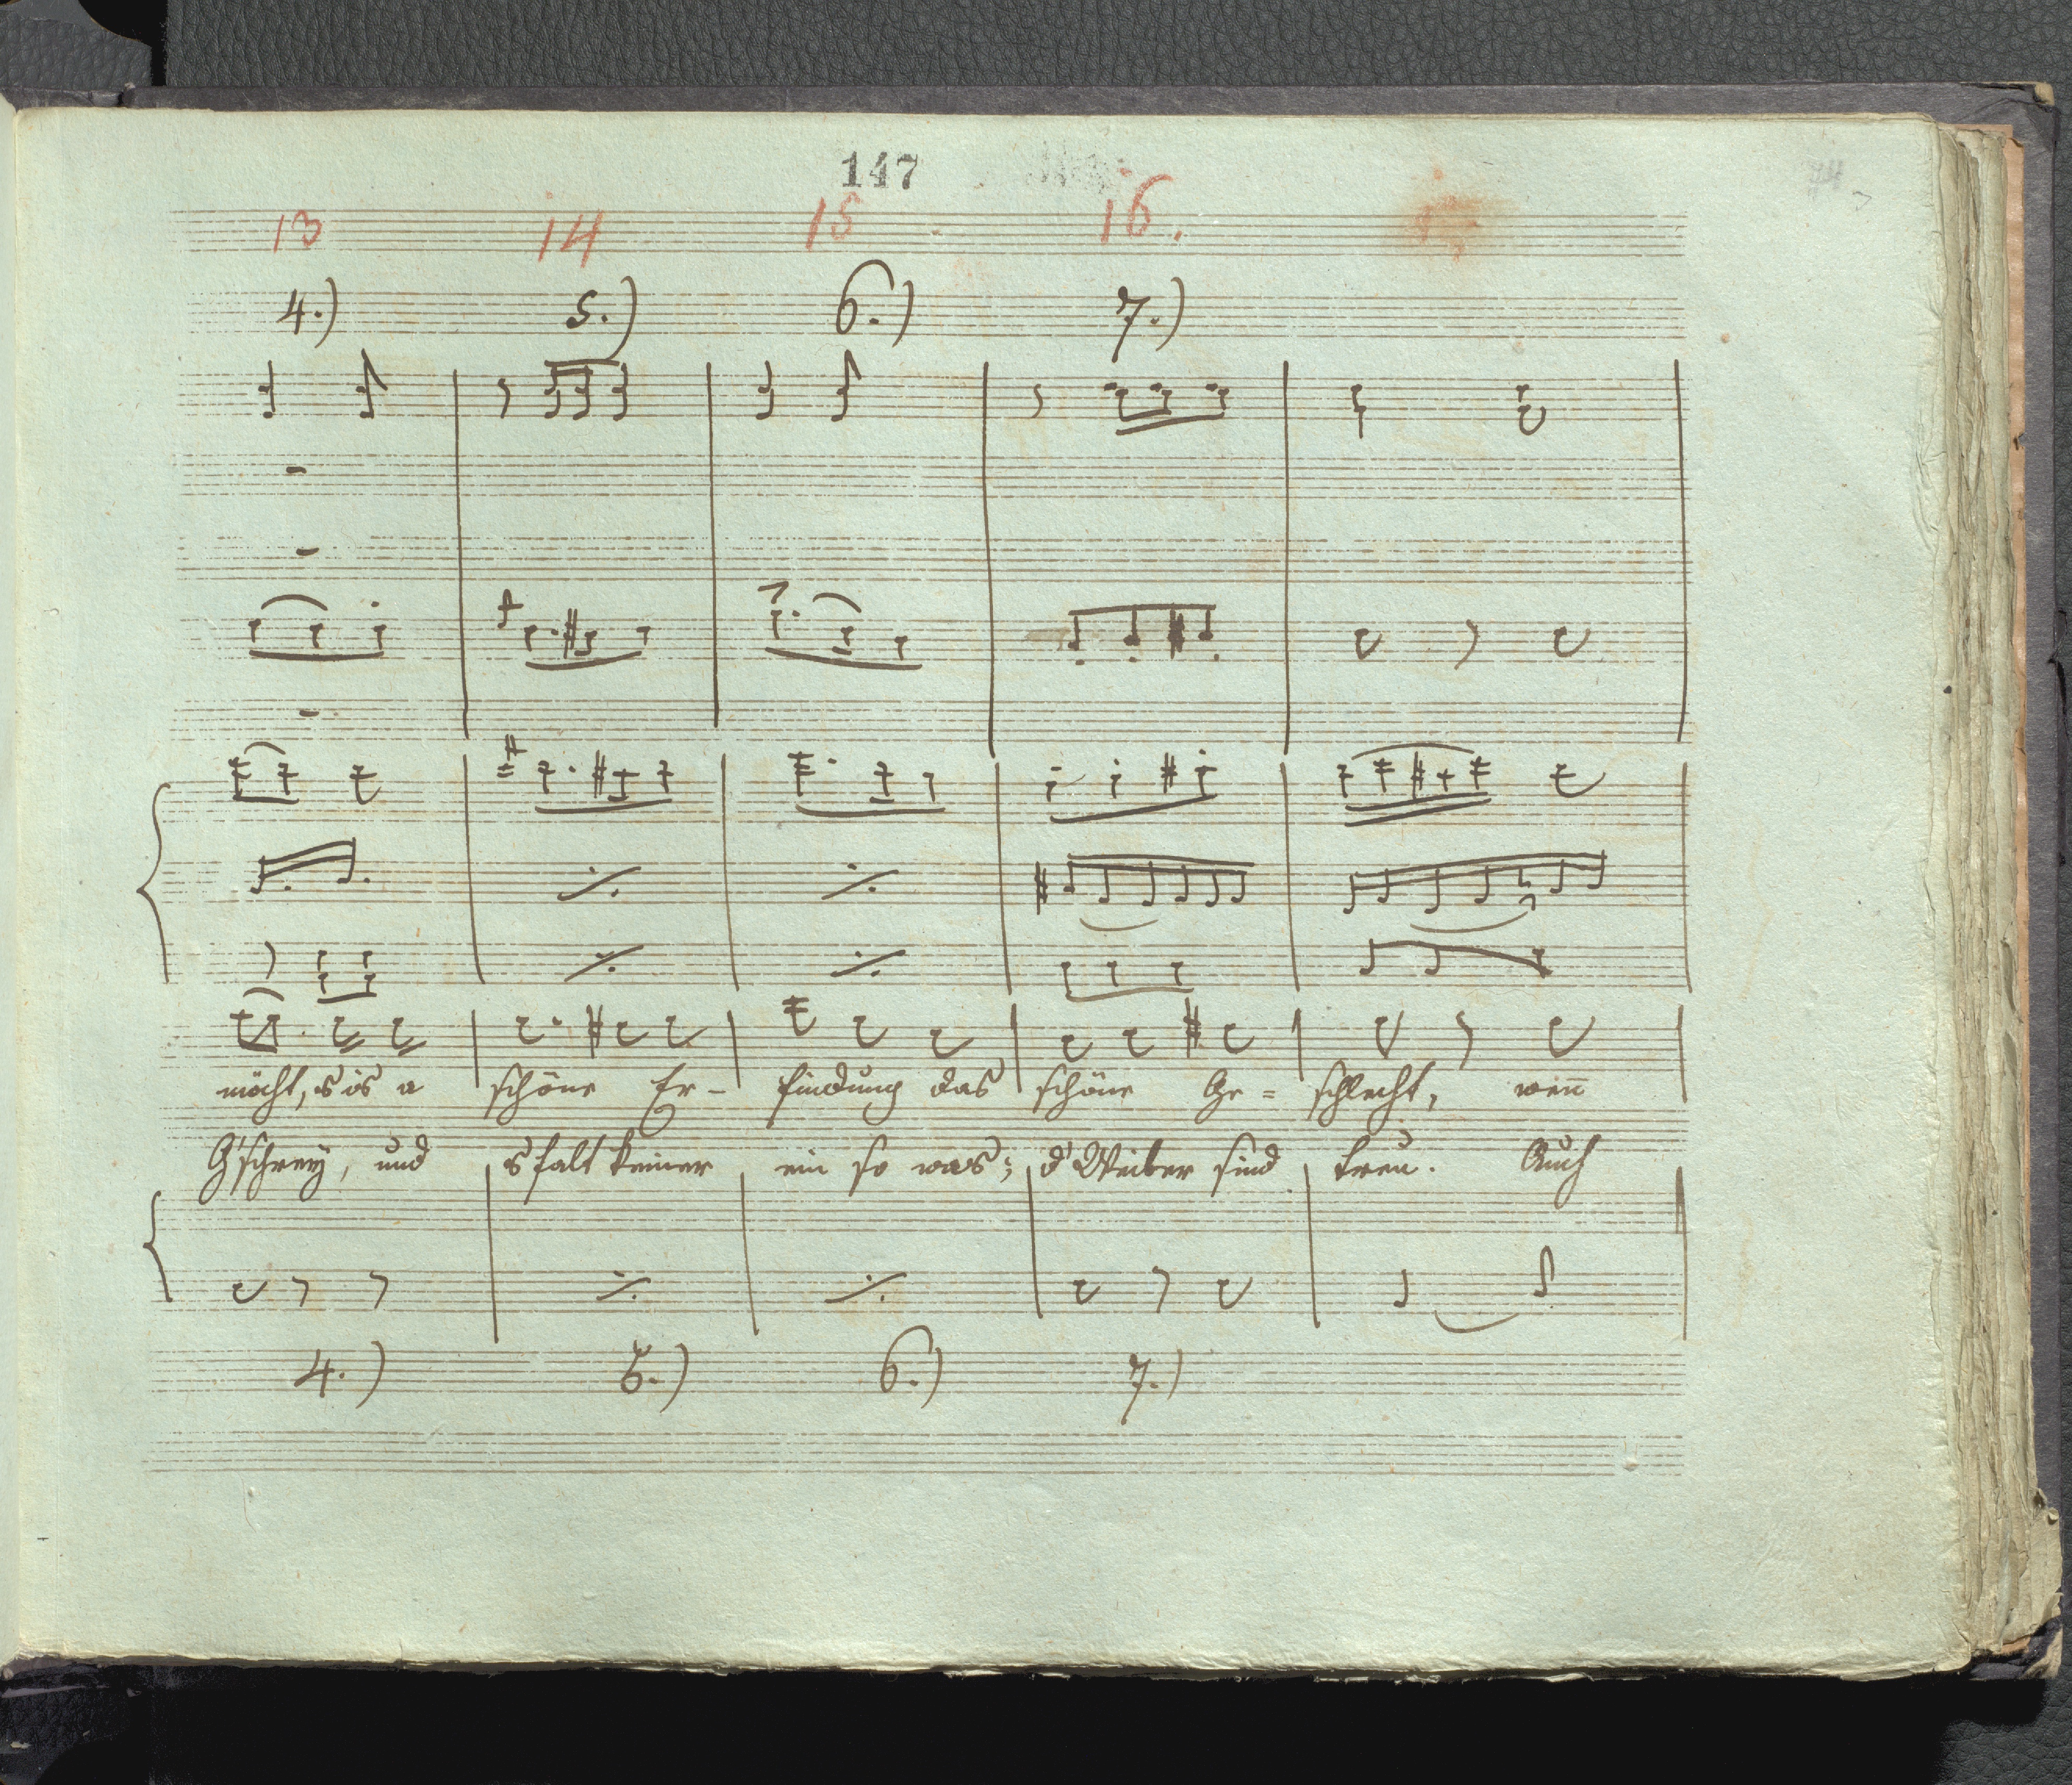 147
13 14 15 16.
4.) 5.) 6.) 7.)
möcht, s'is a schöne Er- findung das schöne Ge= schlecht, wen̅
G'schrey, und s falt keiner ein so was; d' Weiber sind treu. Auch
4.) 5.) 6.) 7.)